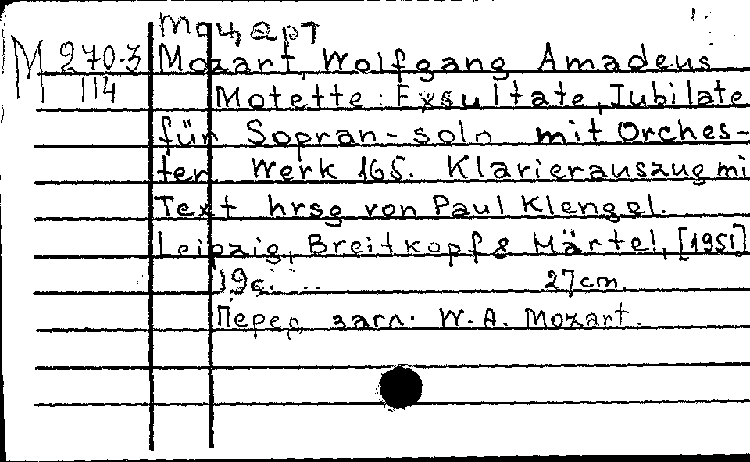 Моцарт
M 270-3 Mozart, Wolfgang Amadeus
114 Motette: Exsultate, Jubilate
für Sopran-solo mit Orches-
ter. Werk 165. Klavierauszug mi
Text hrsg von Paul Klengel.
Leipzig, Breitkopf & Härtel, [1951]
19c. 27cm.
Перед загл. W. A. Mozart.